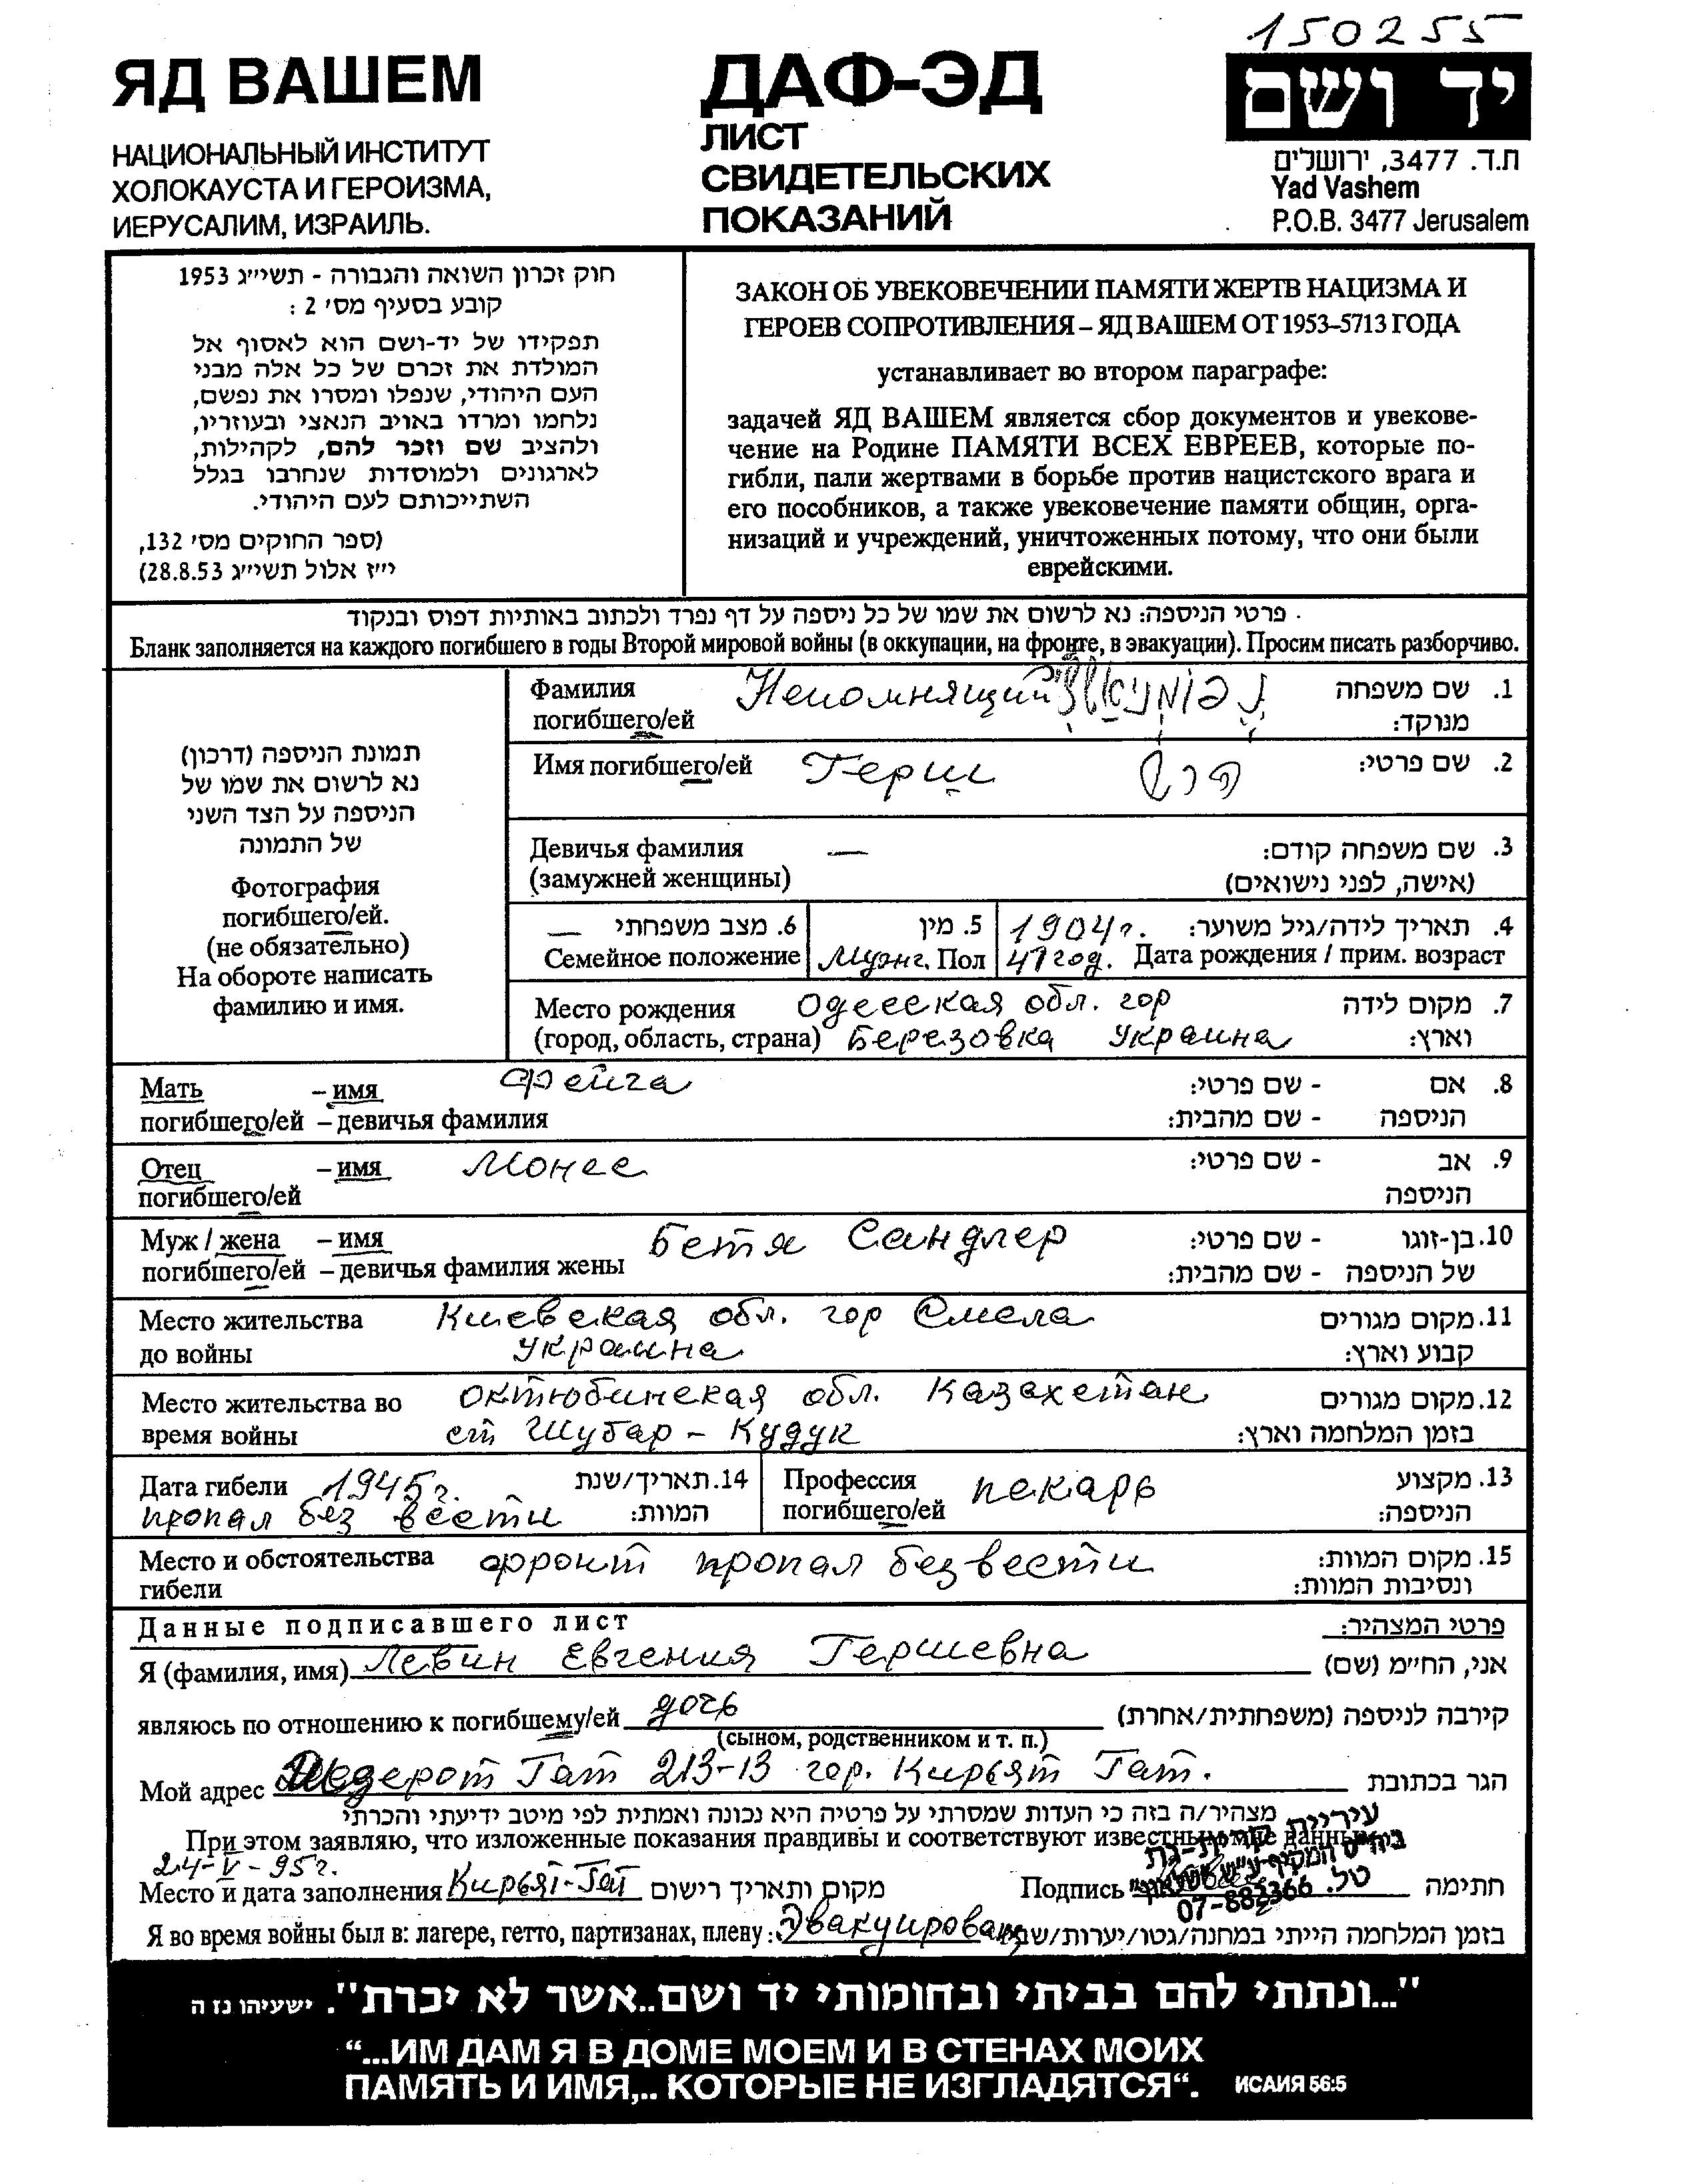 150255
ЯД ВАШЕМ
НАЦИОНАЛЬНЫЙ ИНСТИТУТ
ХОЛОКАУСТА И ГЕРОИЗМА,
ИЕРУСАЛИМ, ИЗРАИЛЬ.
ДАФ-ЭД
ЛИСТ
СВИДЕТЕЛЬСКИХ
ПОКАЗАНИЙ
יד ושם
ת.ד. 3477, ירושלים
Yad Vashem
P.O.B. 3477 Jerusalem
חוק זכרון השואה והגבורה - תשי״ג 1953
קובע בסעיף מס׳ 2 :
תפקידו של יד-ושם הוא לאסוף אל
המולדת את זכרם של כל אלה מבני
העם היהודי, שנפלו ומסרו את נפשם,
נלחמו ומרדו באויב הנאצי ובעוזריו,
ולהציב שם וזכר להם, לקהילות,
לארגונים ולמוסדות שנחרבו בגלל
השתייכותם לעם היהודי.
(ספר החוקים מס׳ 132,
י״ז אלול תשי״ג 28.8.53)
ЗАКОН ОБ УВЕКОВЕЧЕНИИ ПАМЯТИ ЖЕРТВ НАЦИЗМА И
ГЕРОЕВ СОПРОТИВЛЕНИЯ – ЯД ВАШЕМ ОТ 1953-5713 ГОДА
устанавливает во втором параграфе:
задачей ЯД ВАШЕМ является сбор документов и увекове-
чение на Родине ПАМЯТИ ВСЕХ ЕВРЕЕВ, которые по-
гибли, пали жертвами в борьбе против нацистского врага и
его пособников, а также увековечение памяти общин, орга-
низаций и учреждений, уничтоженных потому, что они были
еврейскими.
פרטי הניספה: נא לרשום את שמו של כל ניספה על דף נפרד ולכתוב באותיות דפוס ובנקוד
Бланк заполняется на каждого погибшего в годы Второй мировой войны (в оккупации, на фронте, в эвакуации). Просим писать разборчиво.
תמונת הניספה (דרכון)
נא לרשום את שמו של
הניספה על הצד השני
של התמונה
Фотография
погибшего/ей.
(не обязательно)
На обороте написать
фамилию и имя.
Фамилия Непомнящий 1. שם משפחה
погибшего/ей מנוקד:
Имя погибшего/ей Герш הרש 2. שם פרטי:
Девичья фамилия — 3. שם משפחה קודם:
(замужней женщины) (אישה, לפני נישואים)
— 6. מצב משפחתי 5. מין 1904г. 4. תאריך לידה/גיל משוער:
Семейное положение Мужс. Пол 41 год. Дата рождения / прим. возраст
Место рождения Одесская обл. гор 7. מקום לידה
(город, область, страна) Березовка Украина וארץ:
Мать – имя Фейга 8. אם - שם פרטי:
погибшего/ей – девичья фамилия הניספה - שם מהבית:
Отец – имя Монее 9. אב - שם פרטי:
погибшего/ей הניספה
Муж / жена – имя Бетя Сандлер 10. בן-זוגו - שם פרטי:
погибшего/ей – девичья фамилия жены של הניספה - שם מהבית:
Место жительства Киевская обл. гор Смела 11. מקום מגורים
до войны Украина קבוע וארץ:
Место жительства во октюбинская обл. Казахстан 12. מקום מגורים
время войны ст Шубар - Кудук בזמן המלחמה וארץ:
Дата гибели 1945г. 14. תאריך/שנת
пропал без вести המוות:
Профессия пекарь 13. מקצוע
погибшего/ей הניספה:
Место и обстоятельства фронт пропал без вести 15. מקום המוות:
гибели ונסיבות המוות:
Данные подписавшего лист פרטי המצהיר:
Я (фамилия, имя) Левин Евгения Гершевна אני, הח״מ (שם)
являюсь по отношению к погибшему/ей дочь קירבה לניספה (משפחתית/אחרת)
(сыном, родственником и т. п.)
Мой адрес Шедерот Гат 213-13 гор. Кирьят Гат. הגר בכתובת
מצהיר/ה בזה כי העדות שמסרתי על פרטיה היא נכונה ואמתית לפי מיטב ידיעתי והכרתי
При этом заявляю, что изложенные показания правдивы и соответствуют известным мне данным
עיריית קרית-גת
24-V-95г.
Место и дата заполнения Кирьят-Гат מקום ותאריך רישום Подпись חתימה
טל. 07-882366
Я во время войны был в: лагере, гетто, партизанах, плену: Эвакуирован בזמן המלחמה הייתי במחנה/גטו/יערות/שבי
"...ונתתי להם בביתי ובחומותי יד ושם..אשר לא יכרת". ישעיהו נז ה
“...ИМ ДАМ Я В ДОМЕ МОЕМ И В СТЕНАХ МОИХ
ПАМЯТЬ И ИМЯ,.. КОТОРЫЕ НЕ ИЗГЛАДЯТСЯ“. ИСАИЯ 56:5